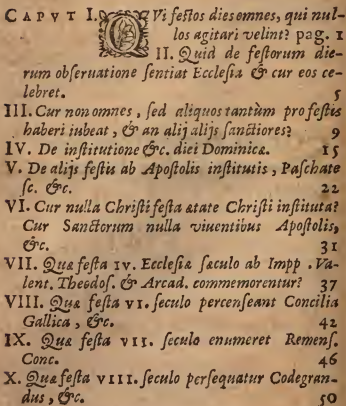 CAPVT I. QVi festos dies omnes, qui nul-
los agitari velint? pag. 1
II. Quid de festorum die-
rum obseruatione sentiat Ecclesia & cur eos ce-
lebret. 5
III. Cur non omnes, sed aliquos tantùm pro festis
haberi iubeat, & an alij alijs sanctiores? 9
IV. De institutione &c. diei Dominicæ. 15
V. De alijs festis ab Apostolis institutis, Paschate
sc. &c. 22
VI. Cur nulla Christi festa ætate Christi instituta?
Cur Sanctorum nulla viuentibus Apostolis,
&c. 31
VII. Quæ festa IV. Ecclesiæ sæculo ab Impp. Va-
lent. Theodos. & Arcad. commemorentur? 37
VIII. Quæ festa VI. seculo percenseant Concilia
Gallica, &c. 42
IX. Quæ festa VII. seculo enumeret Remens.
Conc. 46
X. Quæ festa VIII. seculo persequatur Codegran-
dus, &c. 50